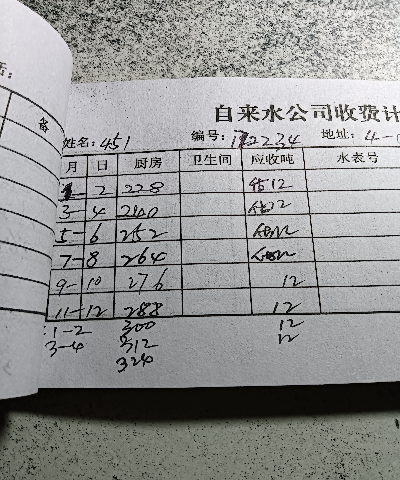 备
自来水公司收费计
姓名: 451 编号: 172234 地址: 4-
月 日 厨房 卫生间 应收吨 水表号
1 2 228 12
3-4 240 12
5-6 252 12
7-8 264 12
9-10 276 12
11-12 288 12
1-2 300 12
3-4 312 12
324